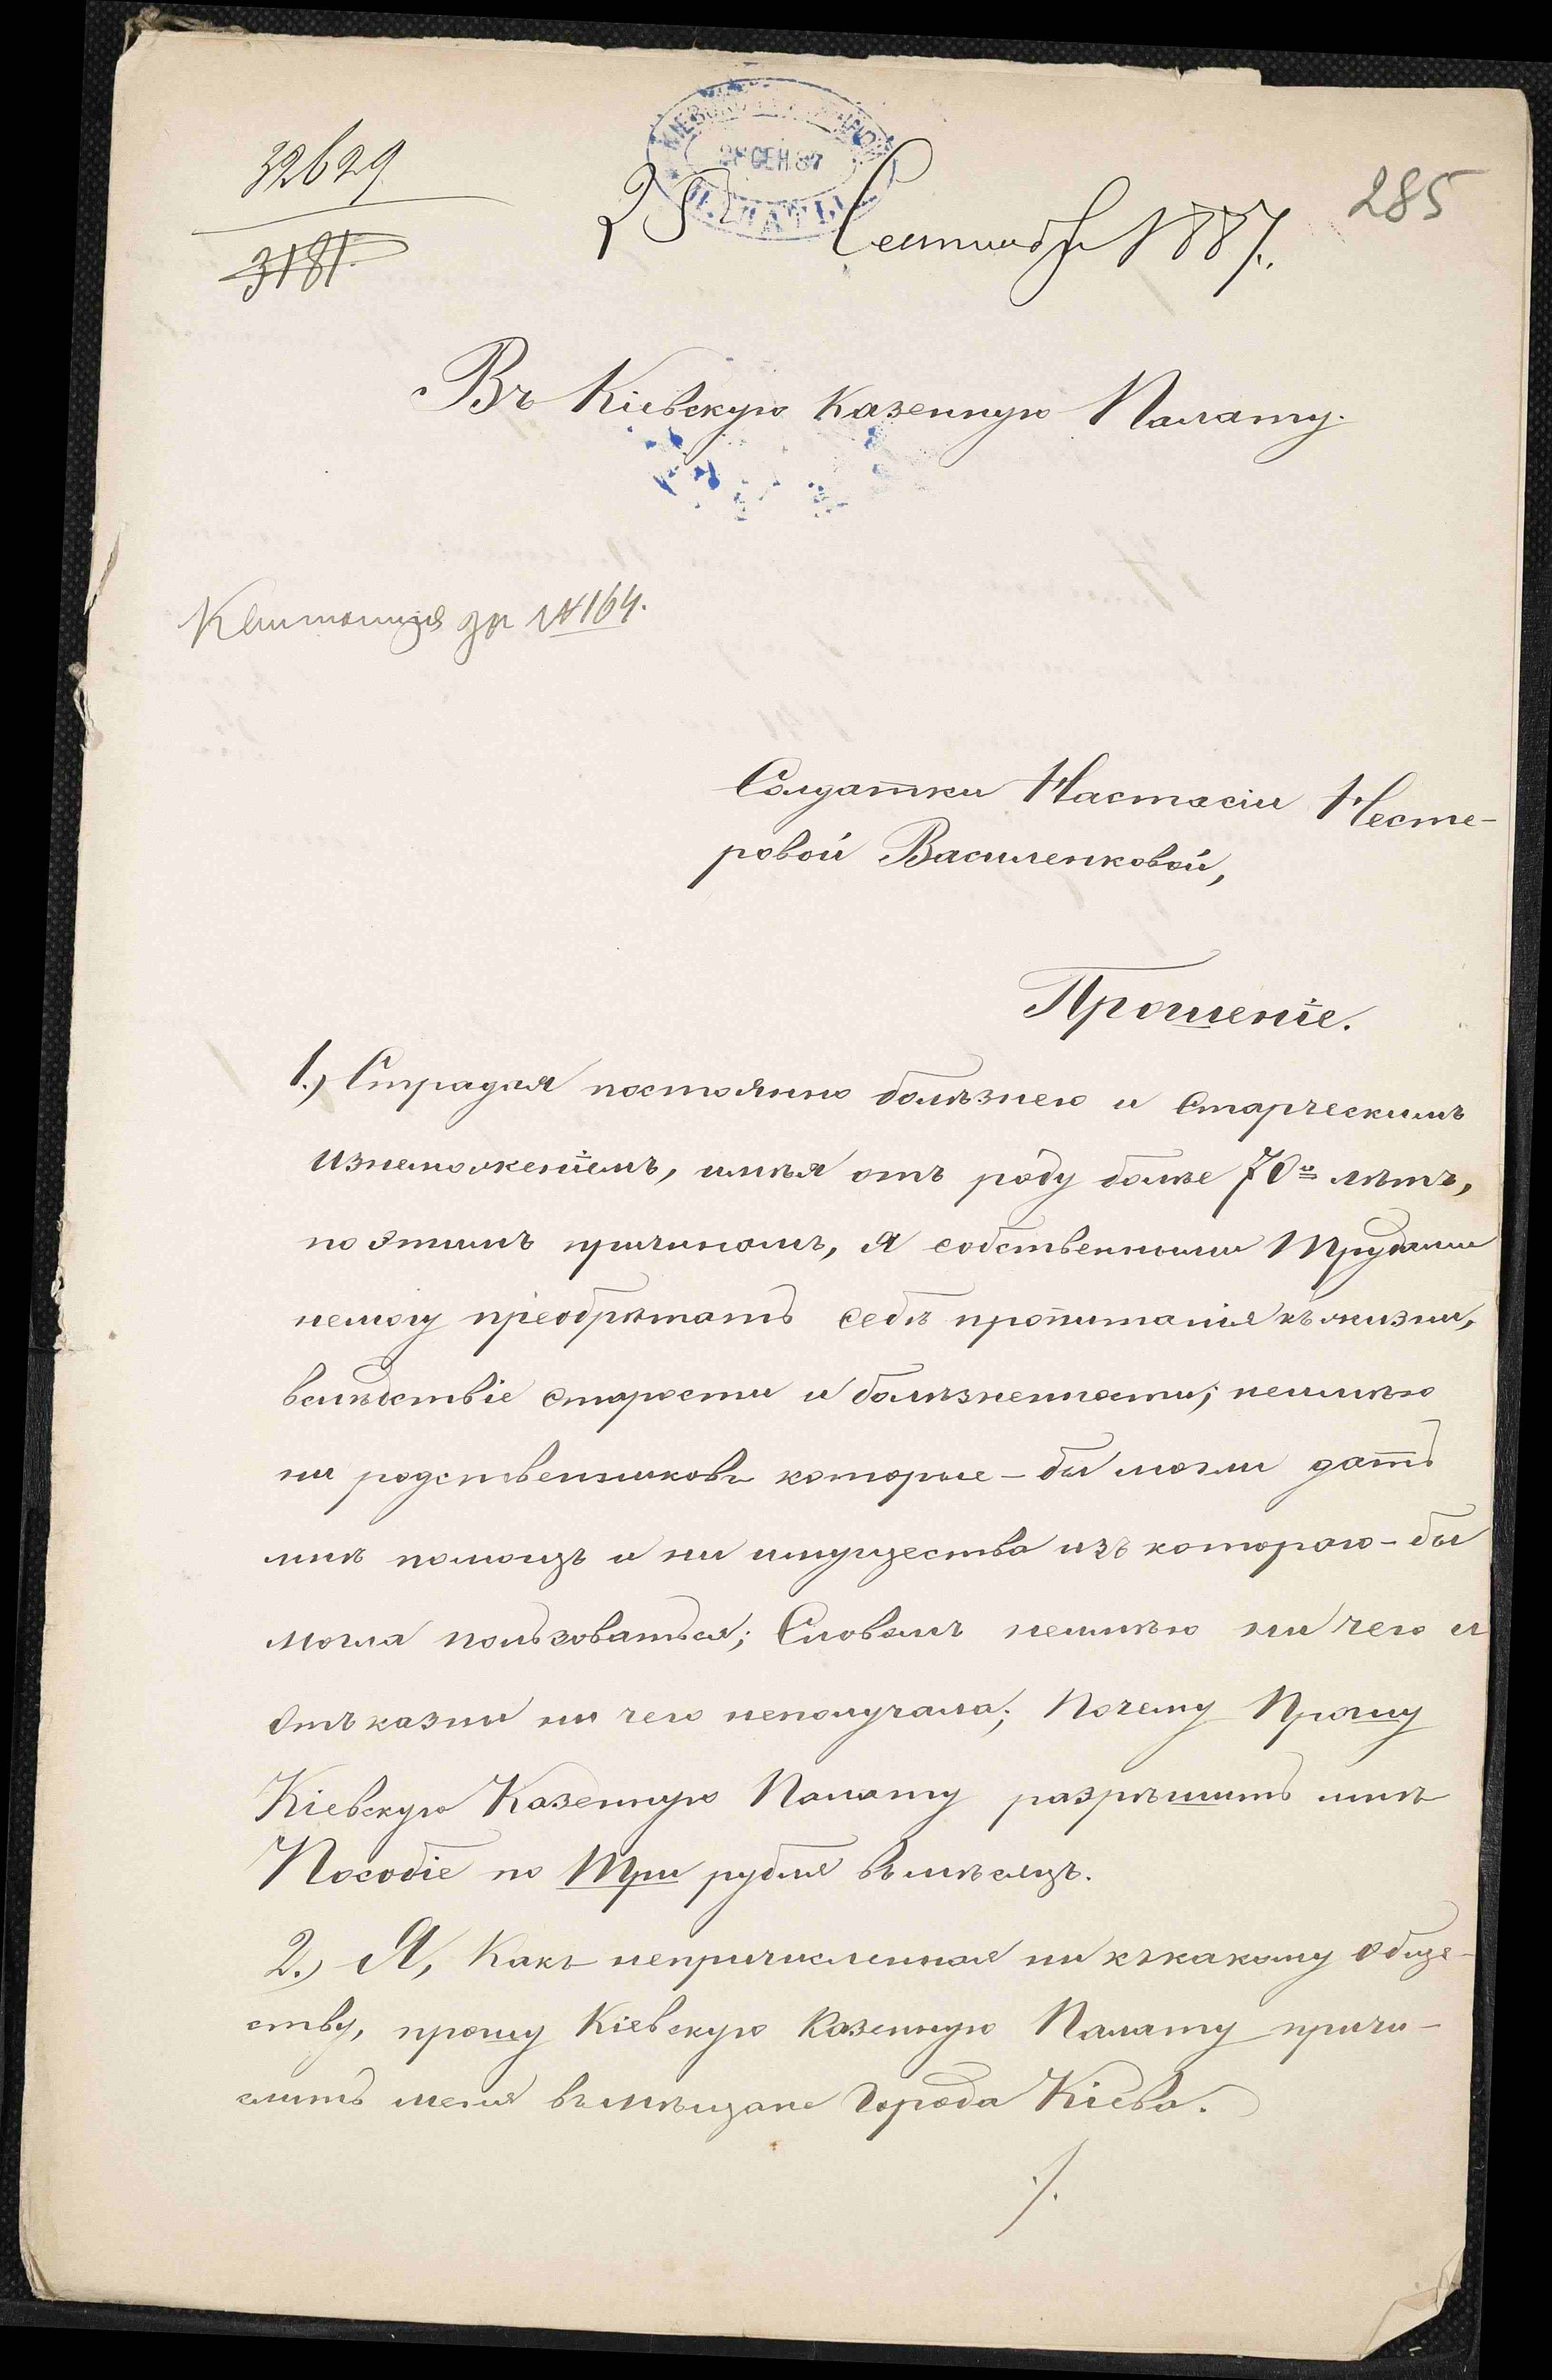 32629
3181.
28 СЕН. 87
25 Сентября 1887.
285
Въ Кіевскую Казенную Палату.
Квитанція за № 164.
Солдатки Настасіи Несте-
ровой Василенковой,
Прошеніе.
1.) Страдая постоянно болѣзнею и Старческимъ
изнеможеніемъ, имѣя отъ роду болѣе 70и лѣтъ,
по этимъ причинамъ, я собственными трудами
немогу пріобрѣтать себѣ пропитанія къ жизни,
вслѣдствіе старости и болѣзненности; неимѣю
ни родственниковъ которые-бы могли дать
мнѣ помощь и ни имущества изъ котораго-бы
могла пользоваться; Словомъ неимѣю ни чего и
отъ казны ни чего неполучала; Почему Прошу
Кіевскую Казенную Палату разрѣшить мнѣ
Пособіе по Три рубля въ мѣсяцъ.
2.) Я, Какъ непричисленная ни къ какому обще-
ству, прошу Кіевскую Казенную Палату причи-
слить меня въ мѣщане Города Кіева.
./.